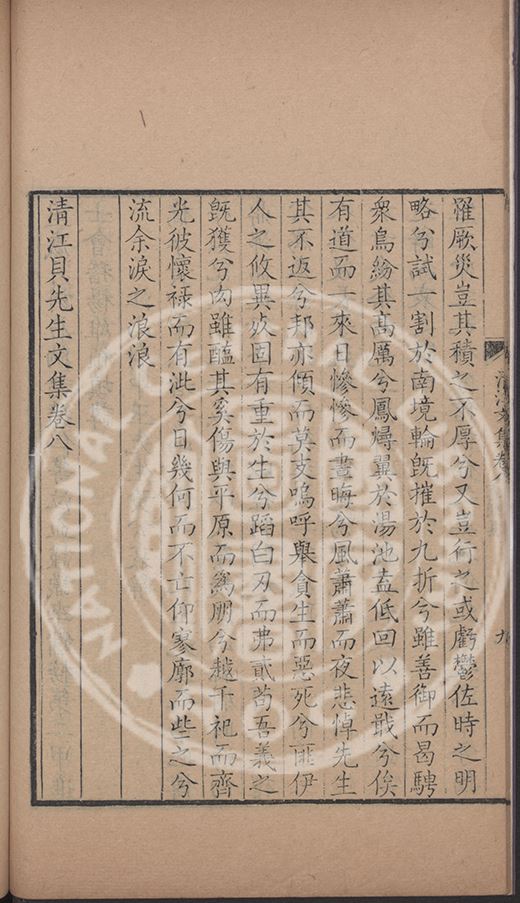 罹厥災豈其積之不厚兮又豈行之或虧鬱佐時之明
略兮試一割於南境輪旣摧於九折兮雖善御而曷騁
衆鳥紛其高厲兮鳳燖翼於湯池盍低回以遠戢兮俟
有道而一來日慘慘而晝晦兮風蕭蕭而夜悲悼先生
其不返兮邦亦傾而莫支嗚呼舉貪生而惡死兮匪伊
人之攸異歧固有重於生兮蹈白刃而弗貳苟吾義之
旣獲兮肉雖醢其奚傷與平原而爲朋兮越千祀而齊
光彼懷祿而有泚兮日幾何而不亡仰寥廓而些之兮
流余淚之浪浪
清江貝先生文集卷八
清江文集卷八
九